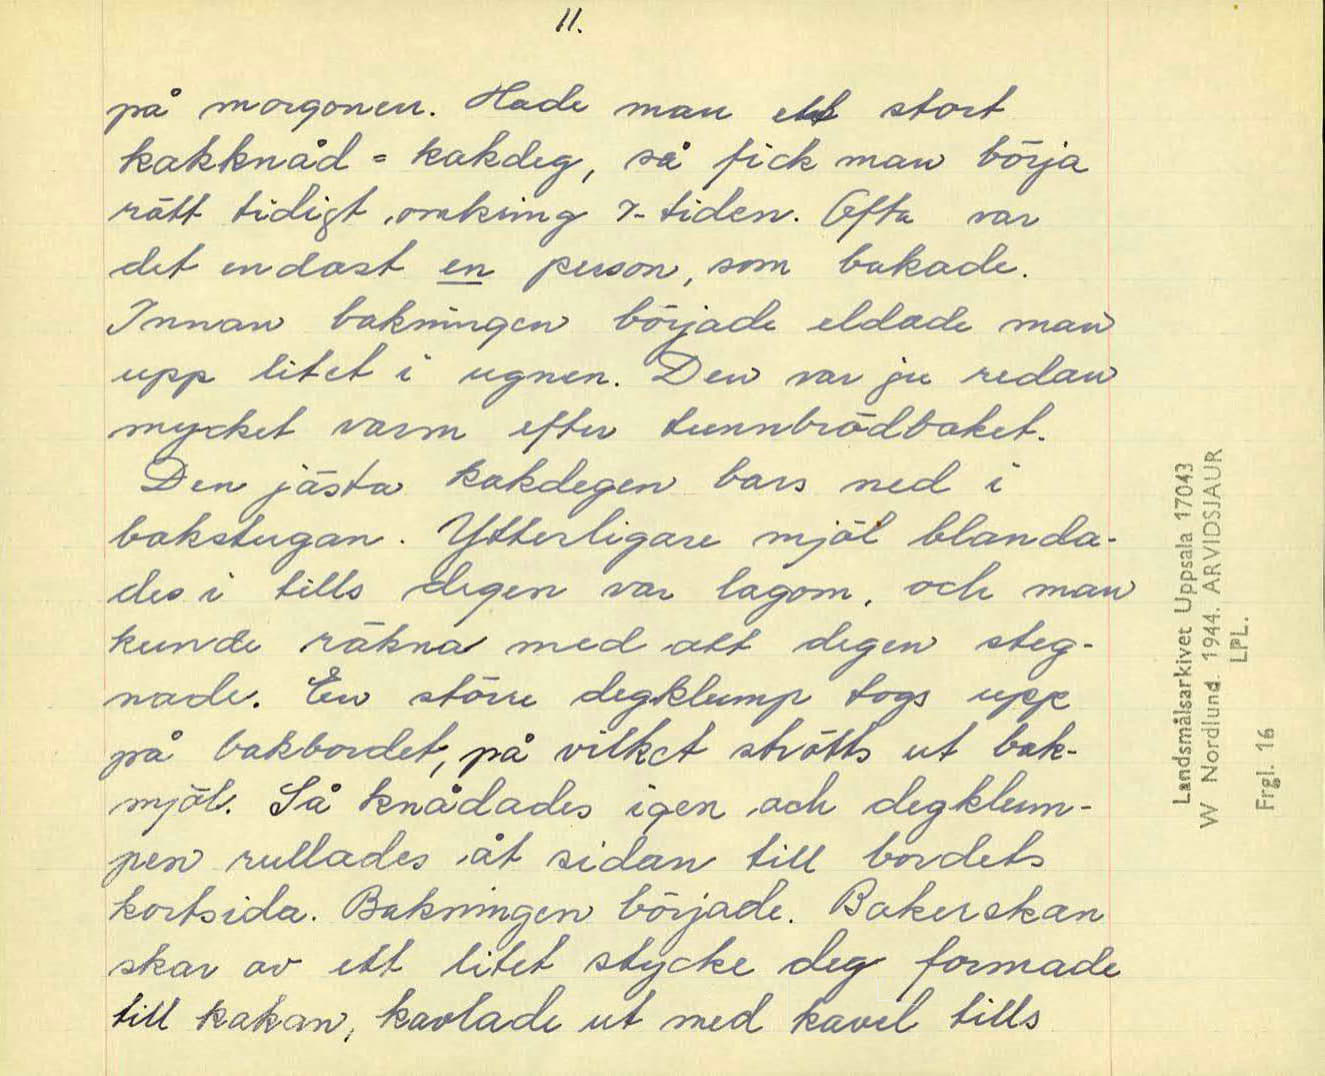 11.
på morgonen. Hade man ett stort
kakknåd = kakdeg, så fick man börja
rätt tidigt, omkring 7-tiden. Ofta var
det endast en person, som bakade.
Innan bakningen började eldade man
upp litet i ugnen. Den var ju redan
mycket varm efter tunnbrödbaket.
Den jästa kakdegen bars ned i
bakstugan. Ytterligare mjöl blanda-
des i tills degen var lagom, och man
kunde räkna med att degen steg-
nade. En större degklump togs upp
på bakbordet, på vilket strötts ut bak-
mjöl. Så knådades igen och degklum-
pen rullades åt sidan till bordets
kortsida. Bakningen började. Bakerskan
skar av ett litet stycke deg formade
till kakan, kavlade ut med kavel tills
Landsmålsarkivet Uppsala 17043
W Nordlund 1944. ARVIDSJAUR
LPL.
Frgl. 16